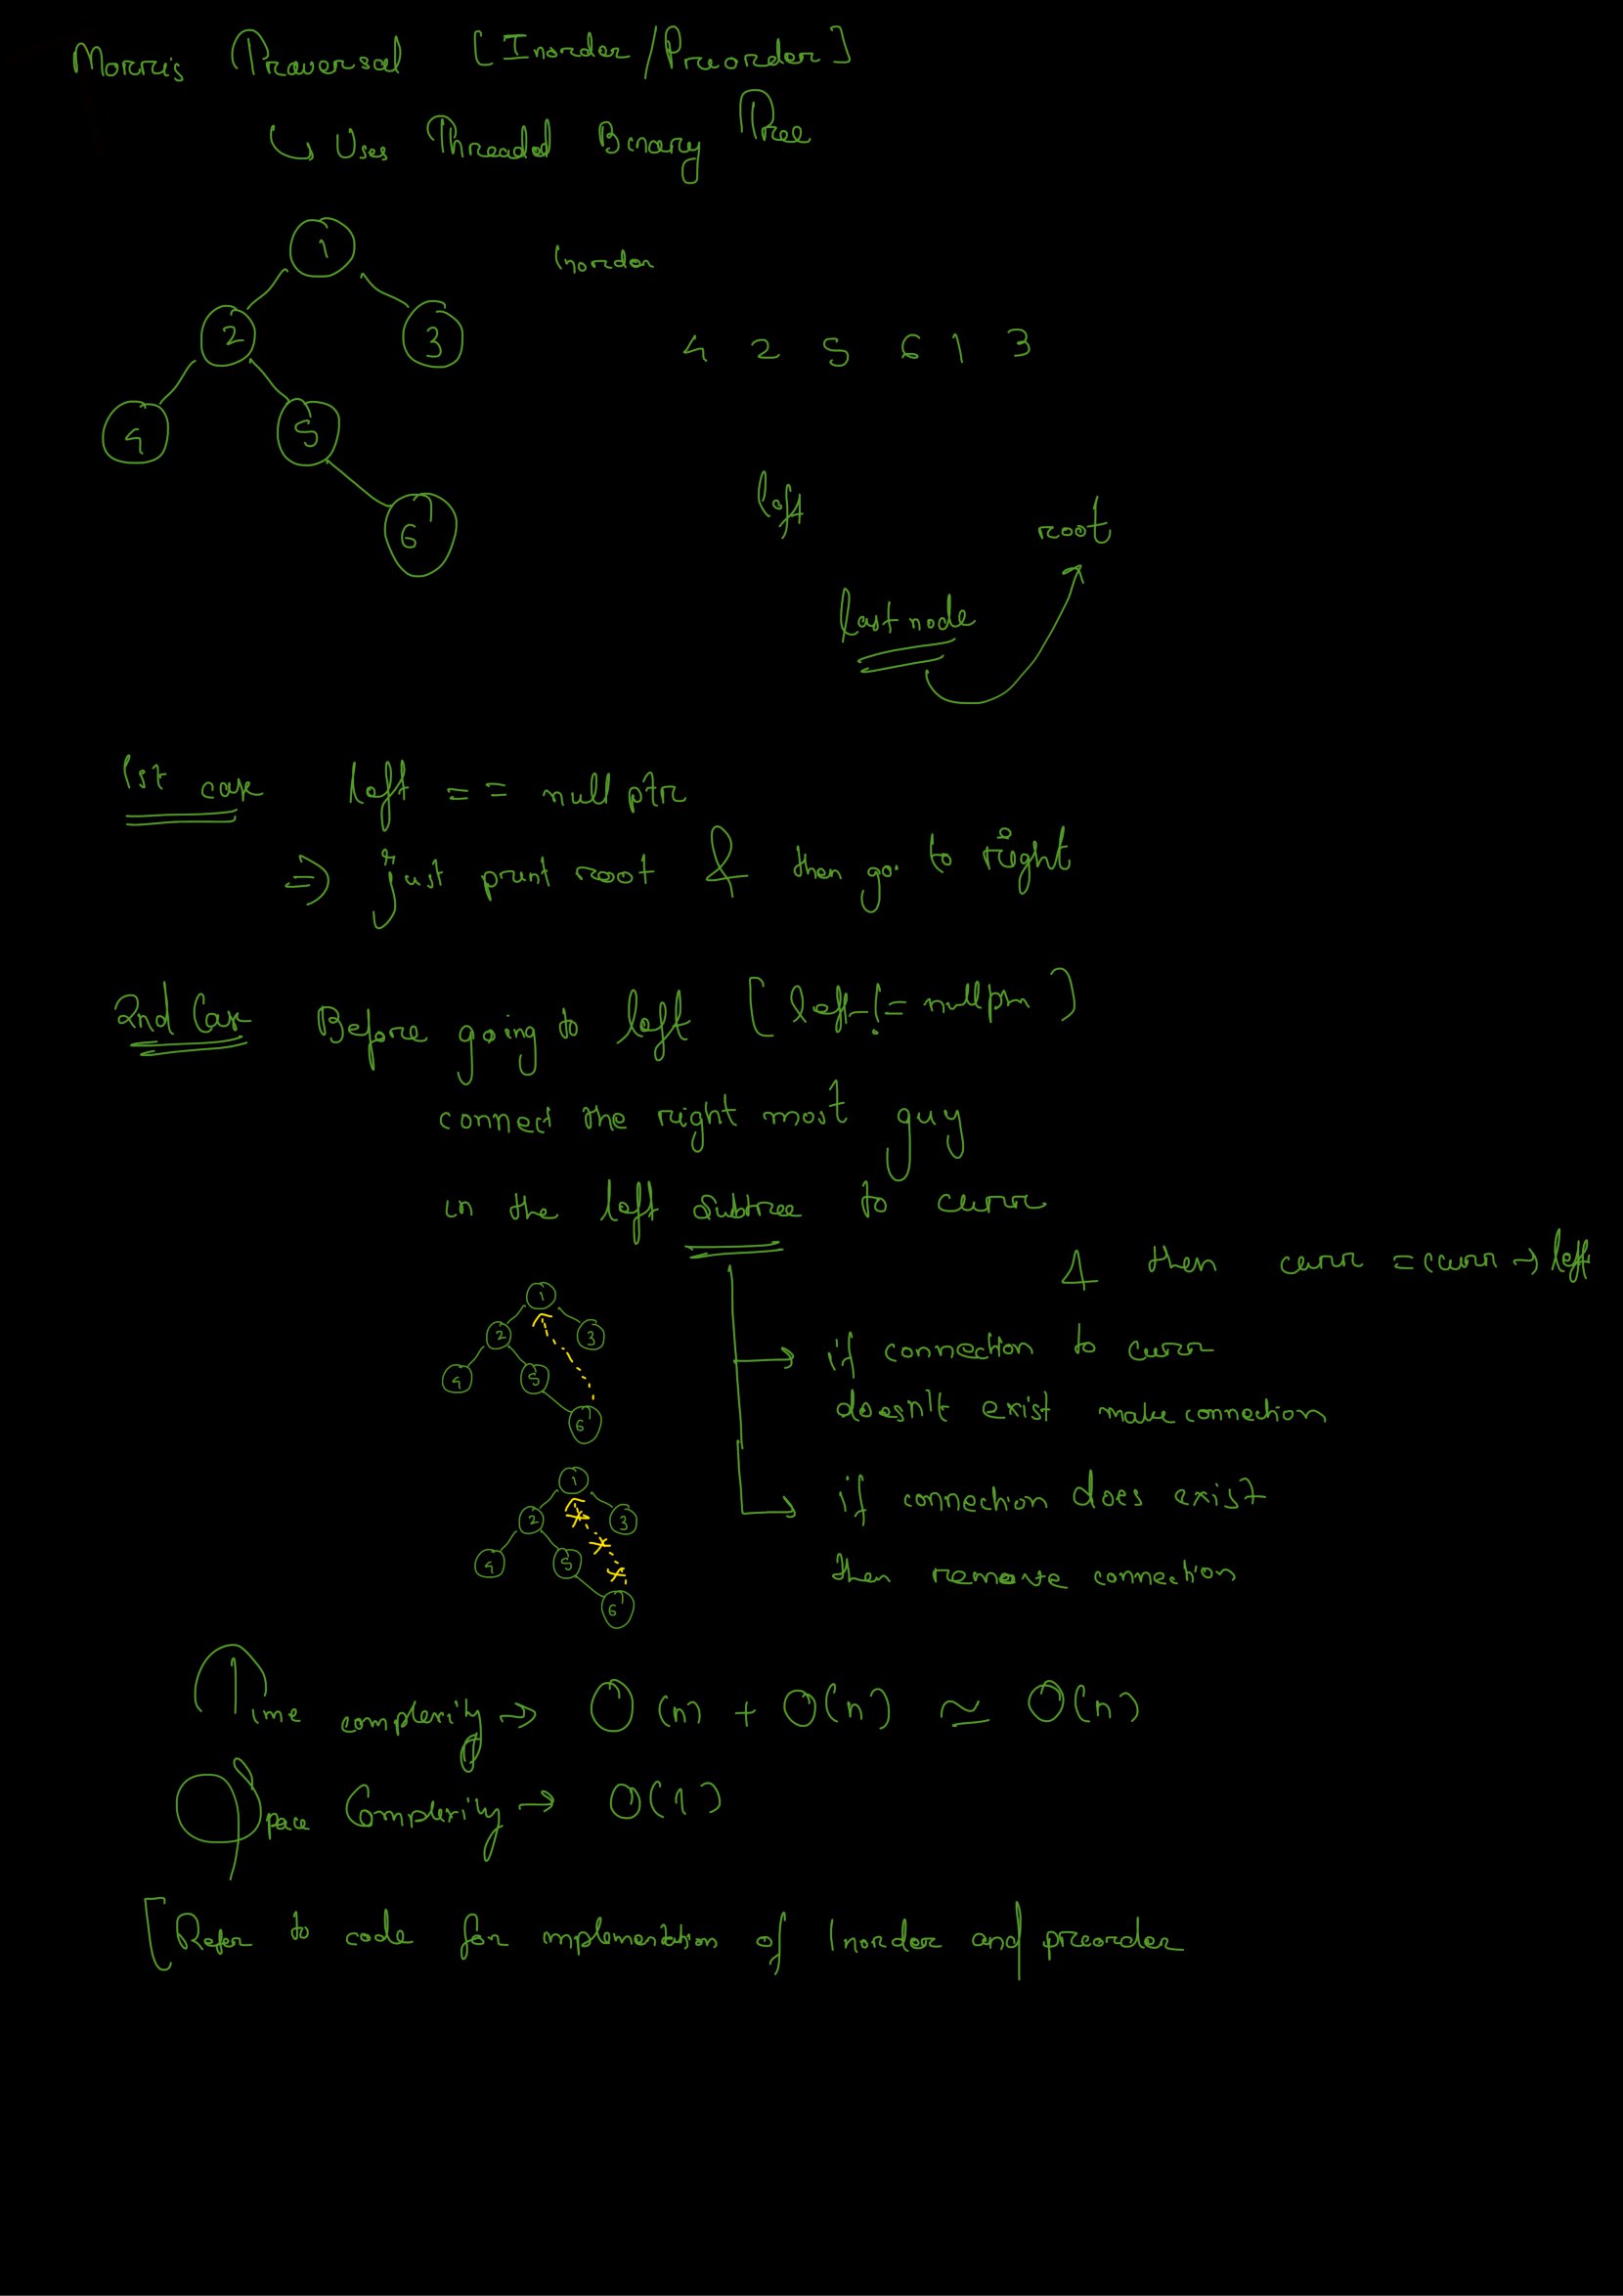 Morris Traversal [Inorder/Preorder]
↳ Uses Threaded Binary Tree
1
Inorder
2 3
4 2 5 6 1 3
4 5
left
root
6
last node
1st case left == nullptr
⇒ just print root & then go to right
2nd Case Before going to left [left != nullptr]
connect the right most guy
in the left subtree to curr
& then curr = curr → left
1
2 3
if connection to curr
4 5
doesn't exist make connection
6
1
if connection does exist
2 3
4 5
then remove connection
6
Time complexity → O(n) + O(n) ≃ O(n)
Space Complexity → O(1)
[Refer to code for implementation of Inorder and preorder